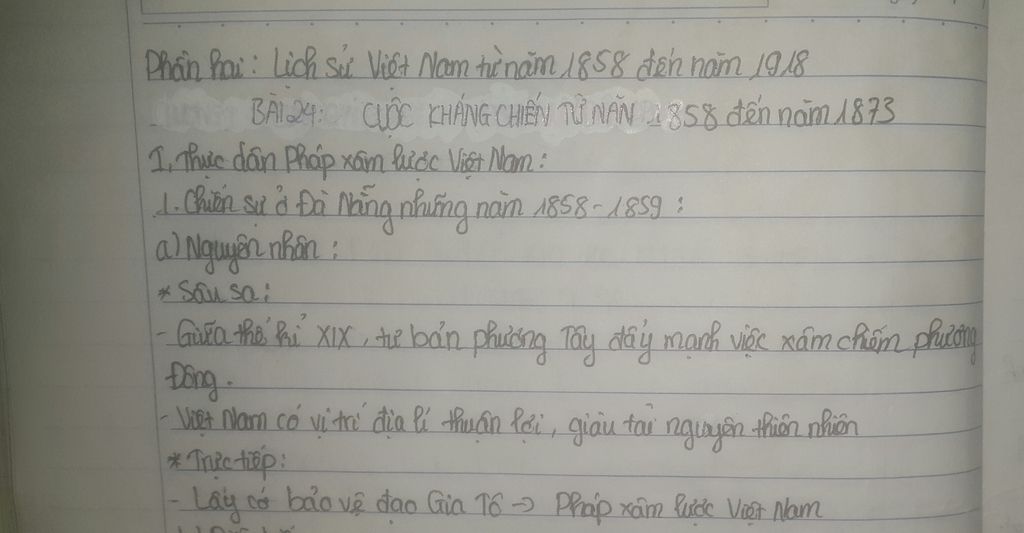 Phần hai: Lịch sử Việt Nam từ năm 1858 đến năm 1918
BÀI 24: CUỘC KHÁNG CHIẾN TỪ NĂN 1858 đến năm 1873
I, Thực dân Pháp xâm lược Việt Nam:
1. Chiến sự ở Đà Nẵng những năm 1858-1859:
a) Nguyên nhân:
* Sâu sa:
- Giữa thế kỉ XIX, tư bản phương Tây đẩy mạnh việc xâm chiếm phương
Đông.
- Việt Nam có vị trí địa lí thuận lợi, giàu tài nguyên thiên nhiên
* Trực tiếp:
- Lấy cớ bảo vệ đạo Gia Tô -> Pháp xâm lược Việt Nam